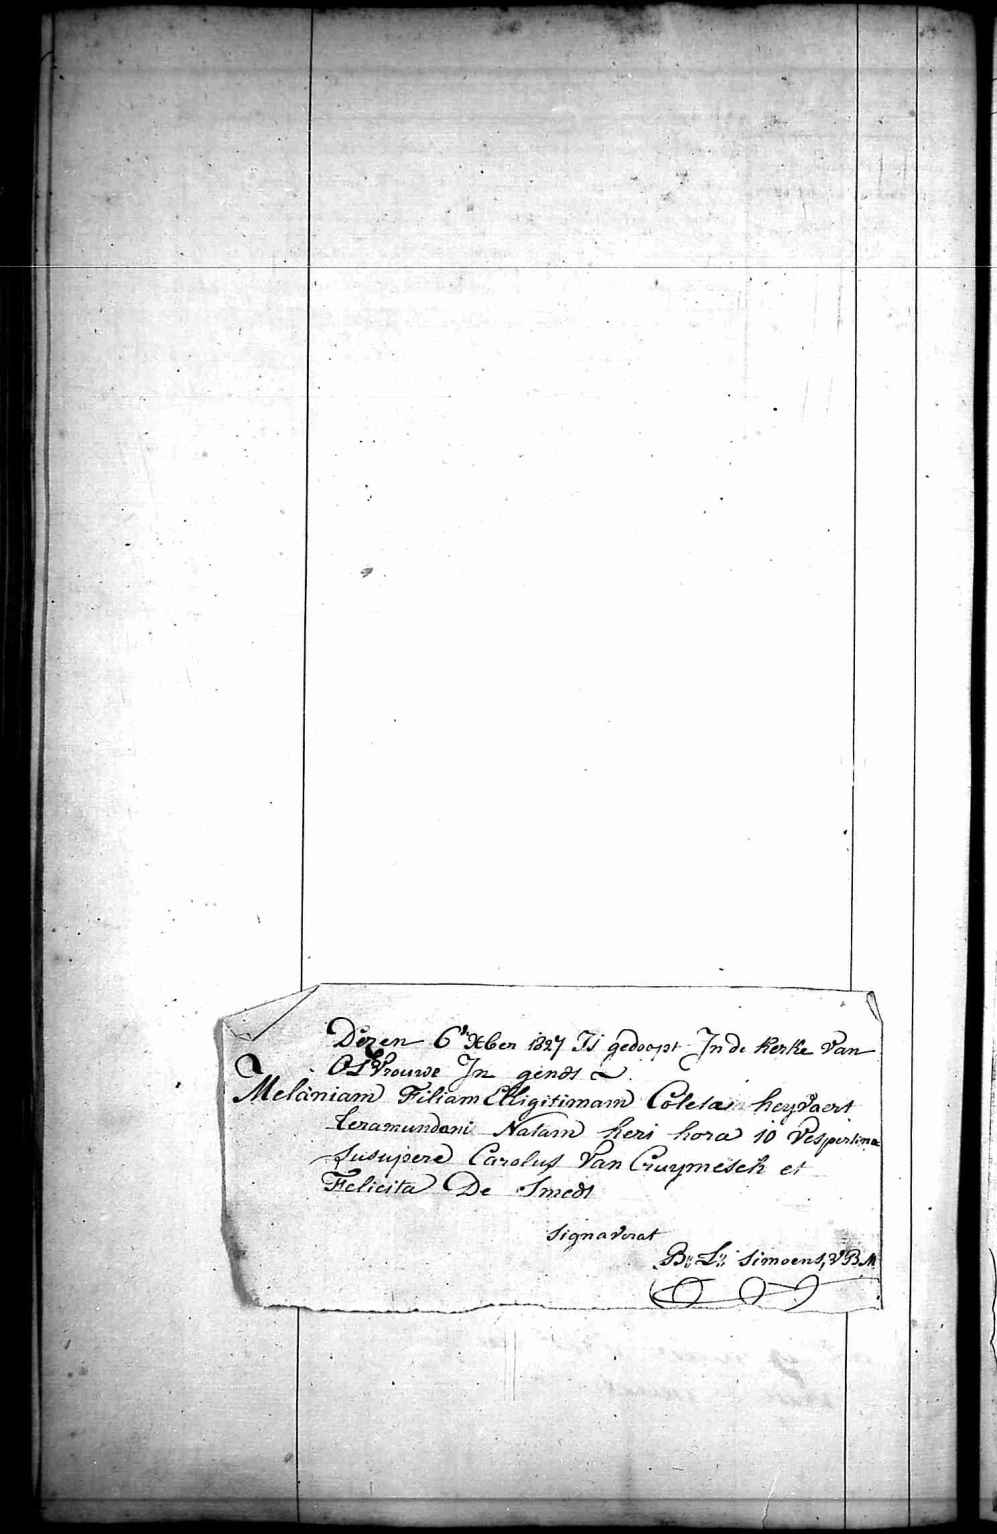 Dezen 6r Xber 1827 Is gedoopt In de kerke Van
OLVrouwe In gendt
Melaniam Filiam Elligitimam Coleta heyvaert
teramundani Natam heri hora 10 Vespertina
Susupere Carolus Van Cruymesch et
Felicita De Smedt
Signaverat
B:: L:: Simoens, VBM